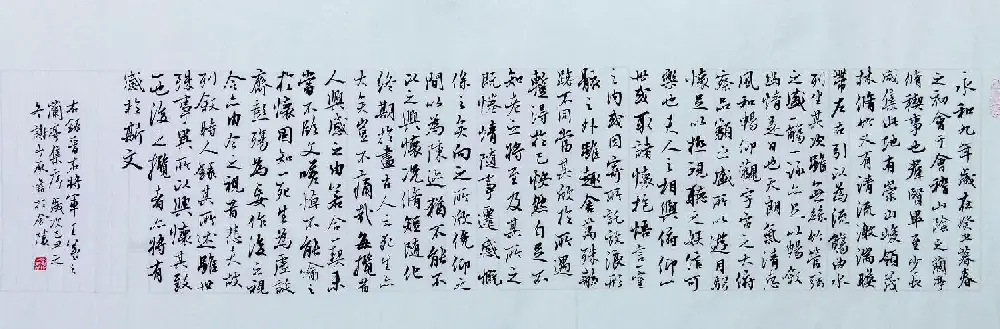 永和九年歲在癸丑暮春
之初會于會稽山陰之蘭亭
脩禊事也群賢畢至少長
咸集此地有崇山峻領茂
林脩竹又有清流激湍映
帶左右引以為流觴曲水
列坐其次雖無絲竹管弦
之盛一觴一詠亦足以暢敘
幽情是日也天朗氣清惠
風和暢仰觀宇宙之大俯
察品類之盛所以遊目騁
懷足以極視聽之娛信可
樂也夫人之相與俯仰一
世或取諸懷抱悟言一室
之內或因寄所託放浪形
骸之外雖趣舍萬殊靜
躁不同當其欣於所遇
蹔得於己快然自足不
知老之將至及其所之
既惓情隨事遷感慨
係之矣向之所欣俛仰之
間以為陳迹猶不能不
以之興懷況脩短隨化
終期於盡古人云死生亦
大矣豈不痛哉每攬昔
人興感之由若合一契未
嘗不臨文嗟悼不能喻之
於懷固知一死生為虛誕
齊彭殤為妄作後之視
今亦由今之視昔悲夫故
列敘時人錄其所述雖世
殊事異所以興懷其致
一也後之攬者亦將有
感於斯文
右錄晉右將軍王羲之
蘭亭集序歲次
於金陵